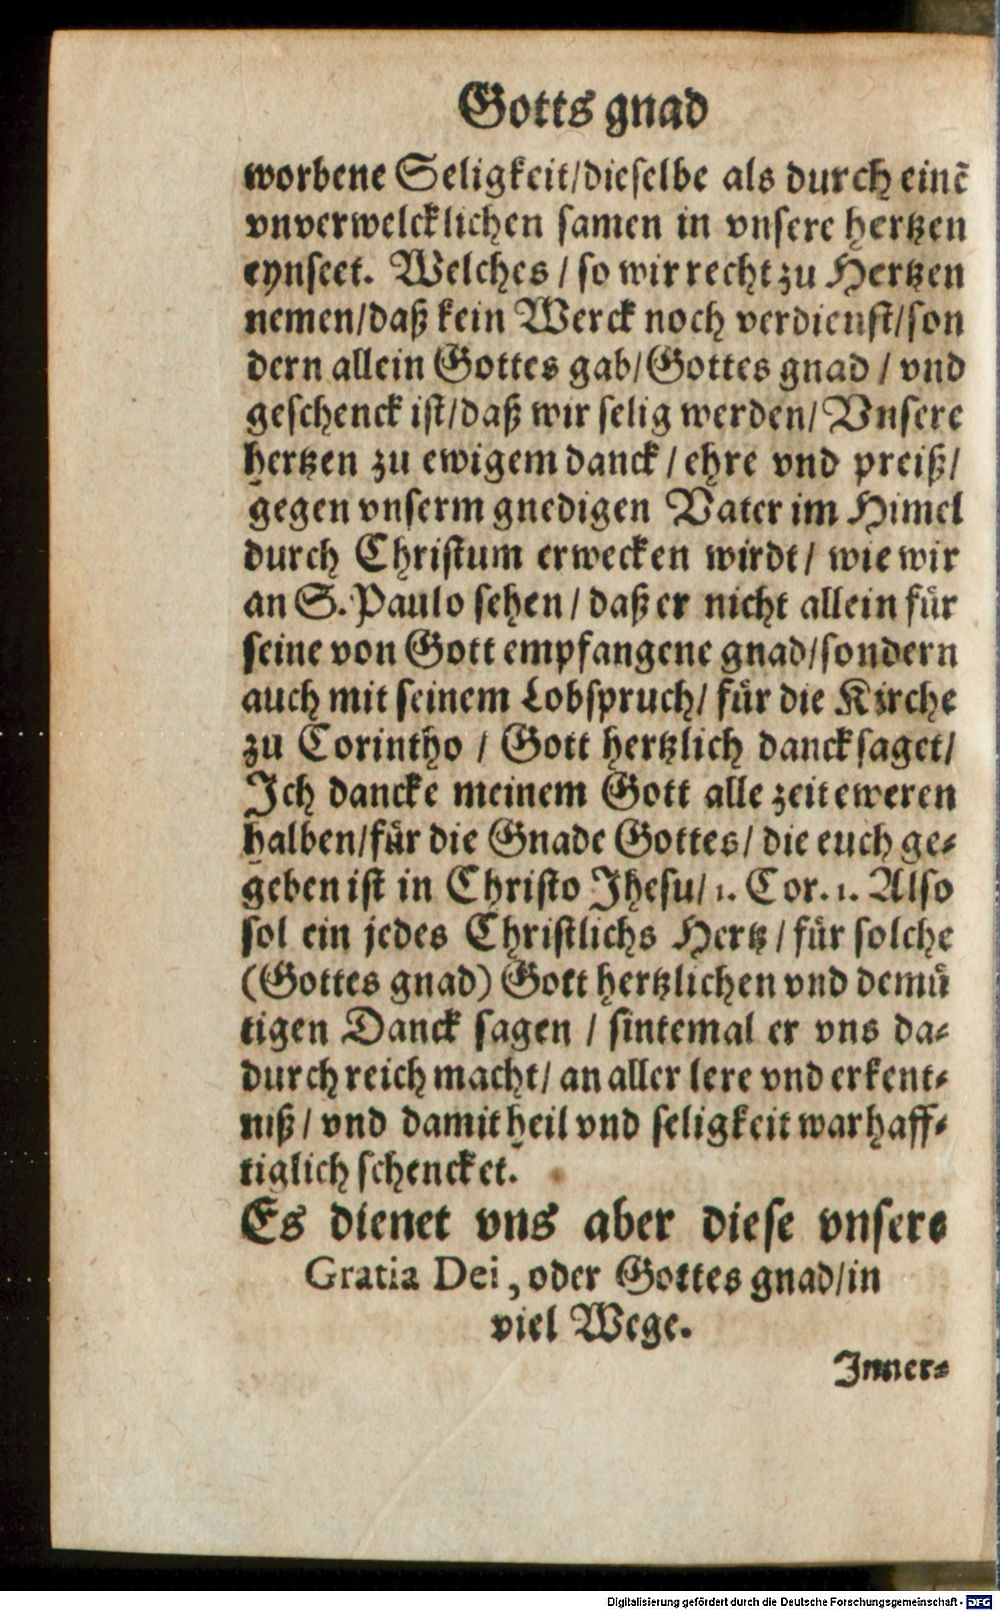 Gotts gnad
worbene Seligkeit/dieselbe als durch einẽ
vnverwelcklichen samen in vnsere hertzen
eynseet. Welches / so wir recht zu Hertzen
nemen/daß kein Werck noch verdienst/son
dern allein Gottes gab/Gottes gnad / vnd
geschenck ist/daß wir selig werden/ Vnsere
hertzen zu ewigem danck / ehre vnd preiß/
gegen vnserm gnedigen Vater im Himel
durch Christum erwecken wirdt / wie wir
an S. Paulo sehen / daß er nicht allein fuͤr
seine von Gott empfangene gnad/sondern
auch mit seinem Lobspruch/ fuͤr die Kirche
zu Corintho / Gott hertzlich dancksaget/
Ich dancke meinem Gott alle zeit eweren
halben/fuͤr die Gnade Gottes/ die euch ge-
geben ist in Christo Jhesu/ 1. Cor. 1. Also
sol ein jedes Christlichs Hertz / fuͤr solche
(Gottes gnad) Gott hertzlichen vnd demuͤ
tigen Danck sagen / sintemal er vns da-
durch reich macht/ an aller lere vnd erkent-
niß / vnd damit heil vnd seligkeit warhaff-
tiglich schencket.
Es dienet vns aber diese vnsere
Gratia Dei, oder Gottes gnad/in
viel Wege.
Inner-
Digitalisierung gefördert durch die Deutsche Forschungsgemeinschaft - DFG